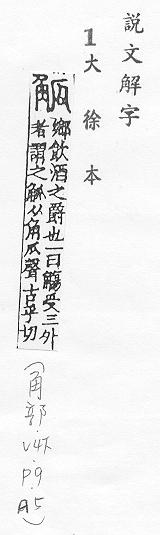 説文解字
1大徐本
觚 鄉飲酒之爵也一曰觴受三升
者謂之觚从角瓜聲古乎切
(角部.V4下.P.9.A5)